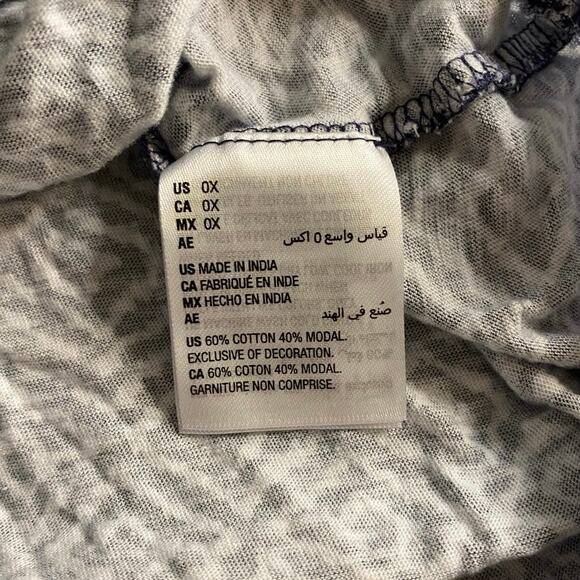 US 0X
CA 0X
MX 0X
AE قياس واسع 0 اكس
US MADE IN INDIA
CA FABRIQUÉ EN INDE
MX HECHO EN INDIA
AE صُنع في الهند
US 60% COTTON 40% MODAL.
EXCLUSIVE OF DECORATION.
CA 60% COTON 40% MODAL.
GARNITURE NON COMPRISE.